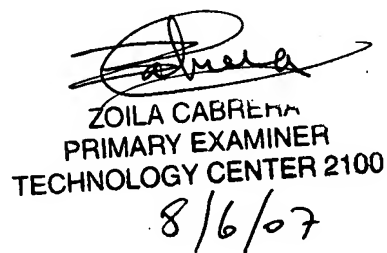 Cabrera
ZOILA CABRERA
PRIMARY EXAMINER
TECHNOLOGY CENTER 2100
8/6/07